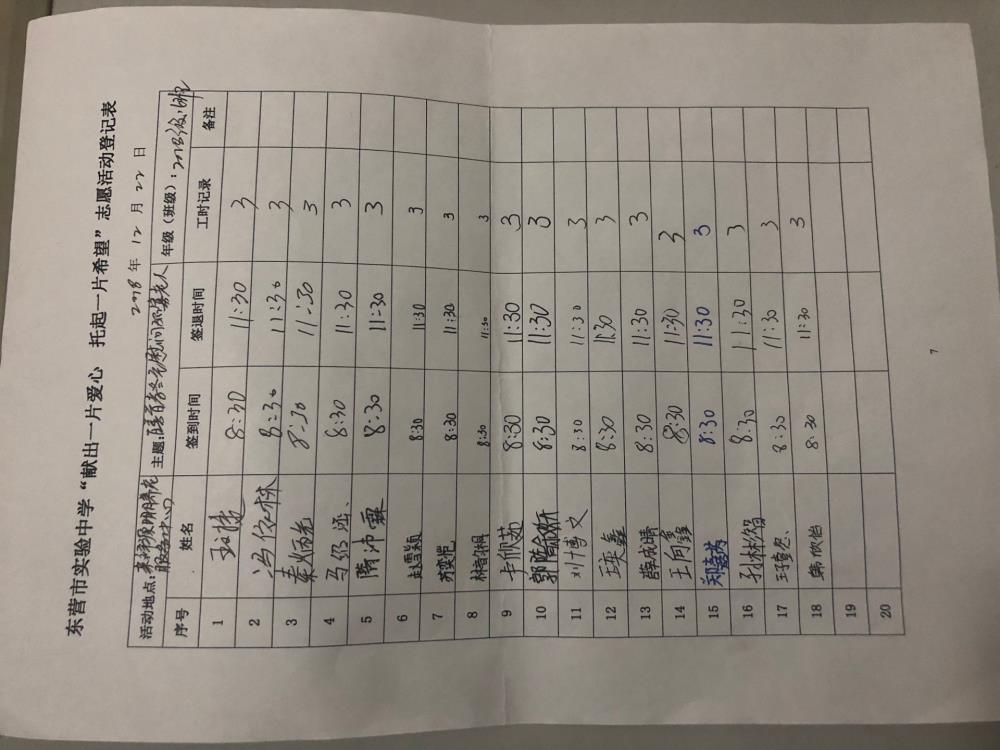 东营市实验中学“献出一片爱心 托起一片希望”志愿活动登记表
2018 年 12 月 22 日
活动地点: 服务中心 主题: 慰问 老人 年级（班级）: 2018级
序号 姓名 签到时间 签退时间 工时记录 备注
1 8:30 11:30 3
2 冯依林 8:30 11:30 3
3 秦炳尧 8:30 11:30 3
4 马绍涵 8:30 11:30 3
5 隋沛霖 8:30 11:30 3
6 赵雪颖 8:30 11:30 3
7 苏奕帆 8:30 11:30 3
8 8:30 11:30 3
9 8:30 11:30 3
10 8:30 11:30 3
11 刘博文 8:30 11:30 3
12 王奕鑫 8:30 11:30 3
13 薛成晴 8:30 11:30 3
14 王尚鑫 8:30 11:30 3
15 郑嘉芮 8:30 11:30 3
16 孙林 8:30 11:30 3
17 8:30 11:30 3
18 韩欣怡 8:30 11:30 3
19
20
7